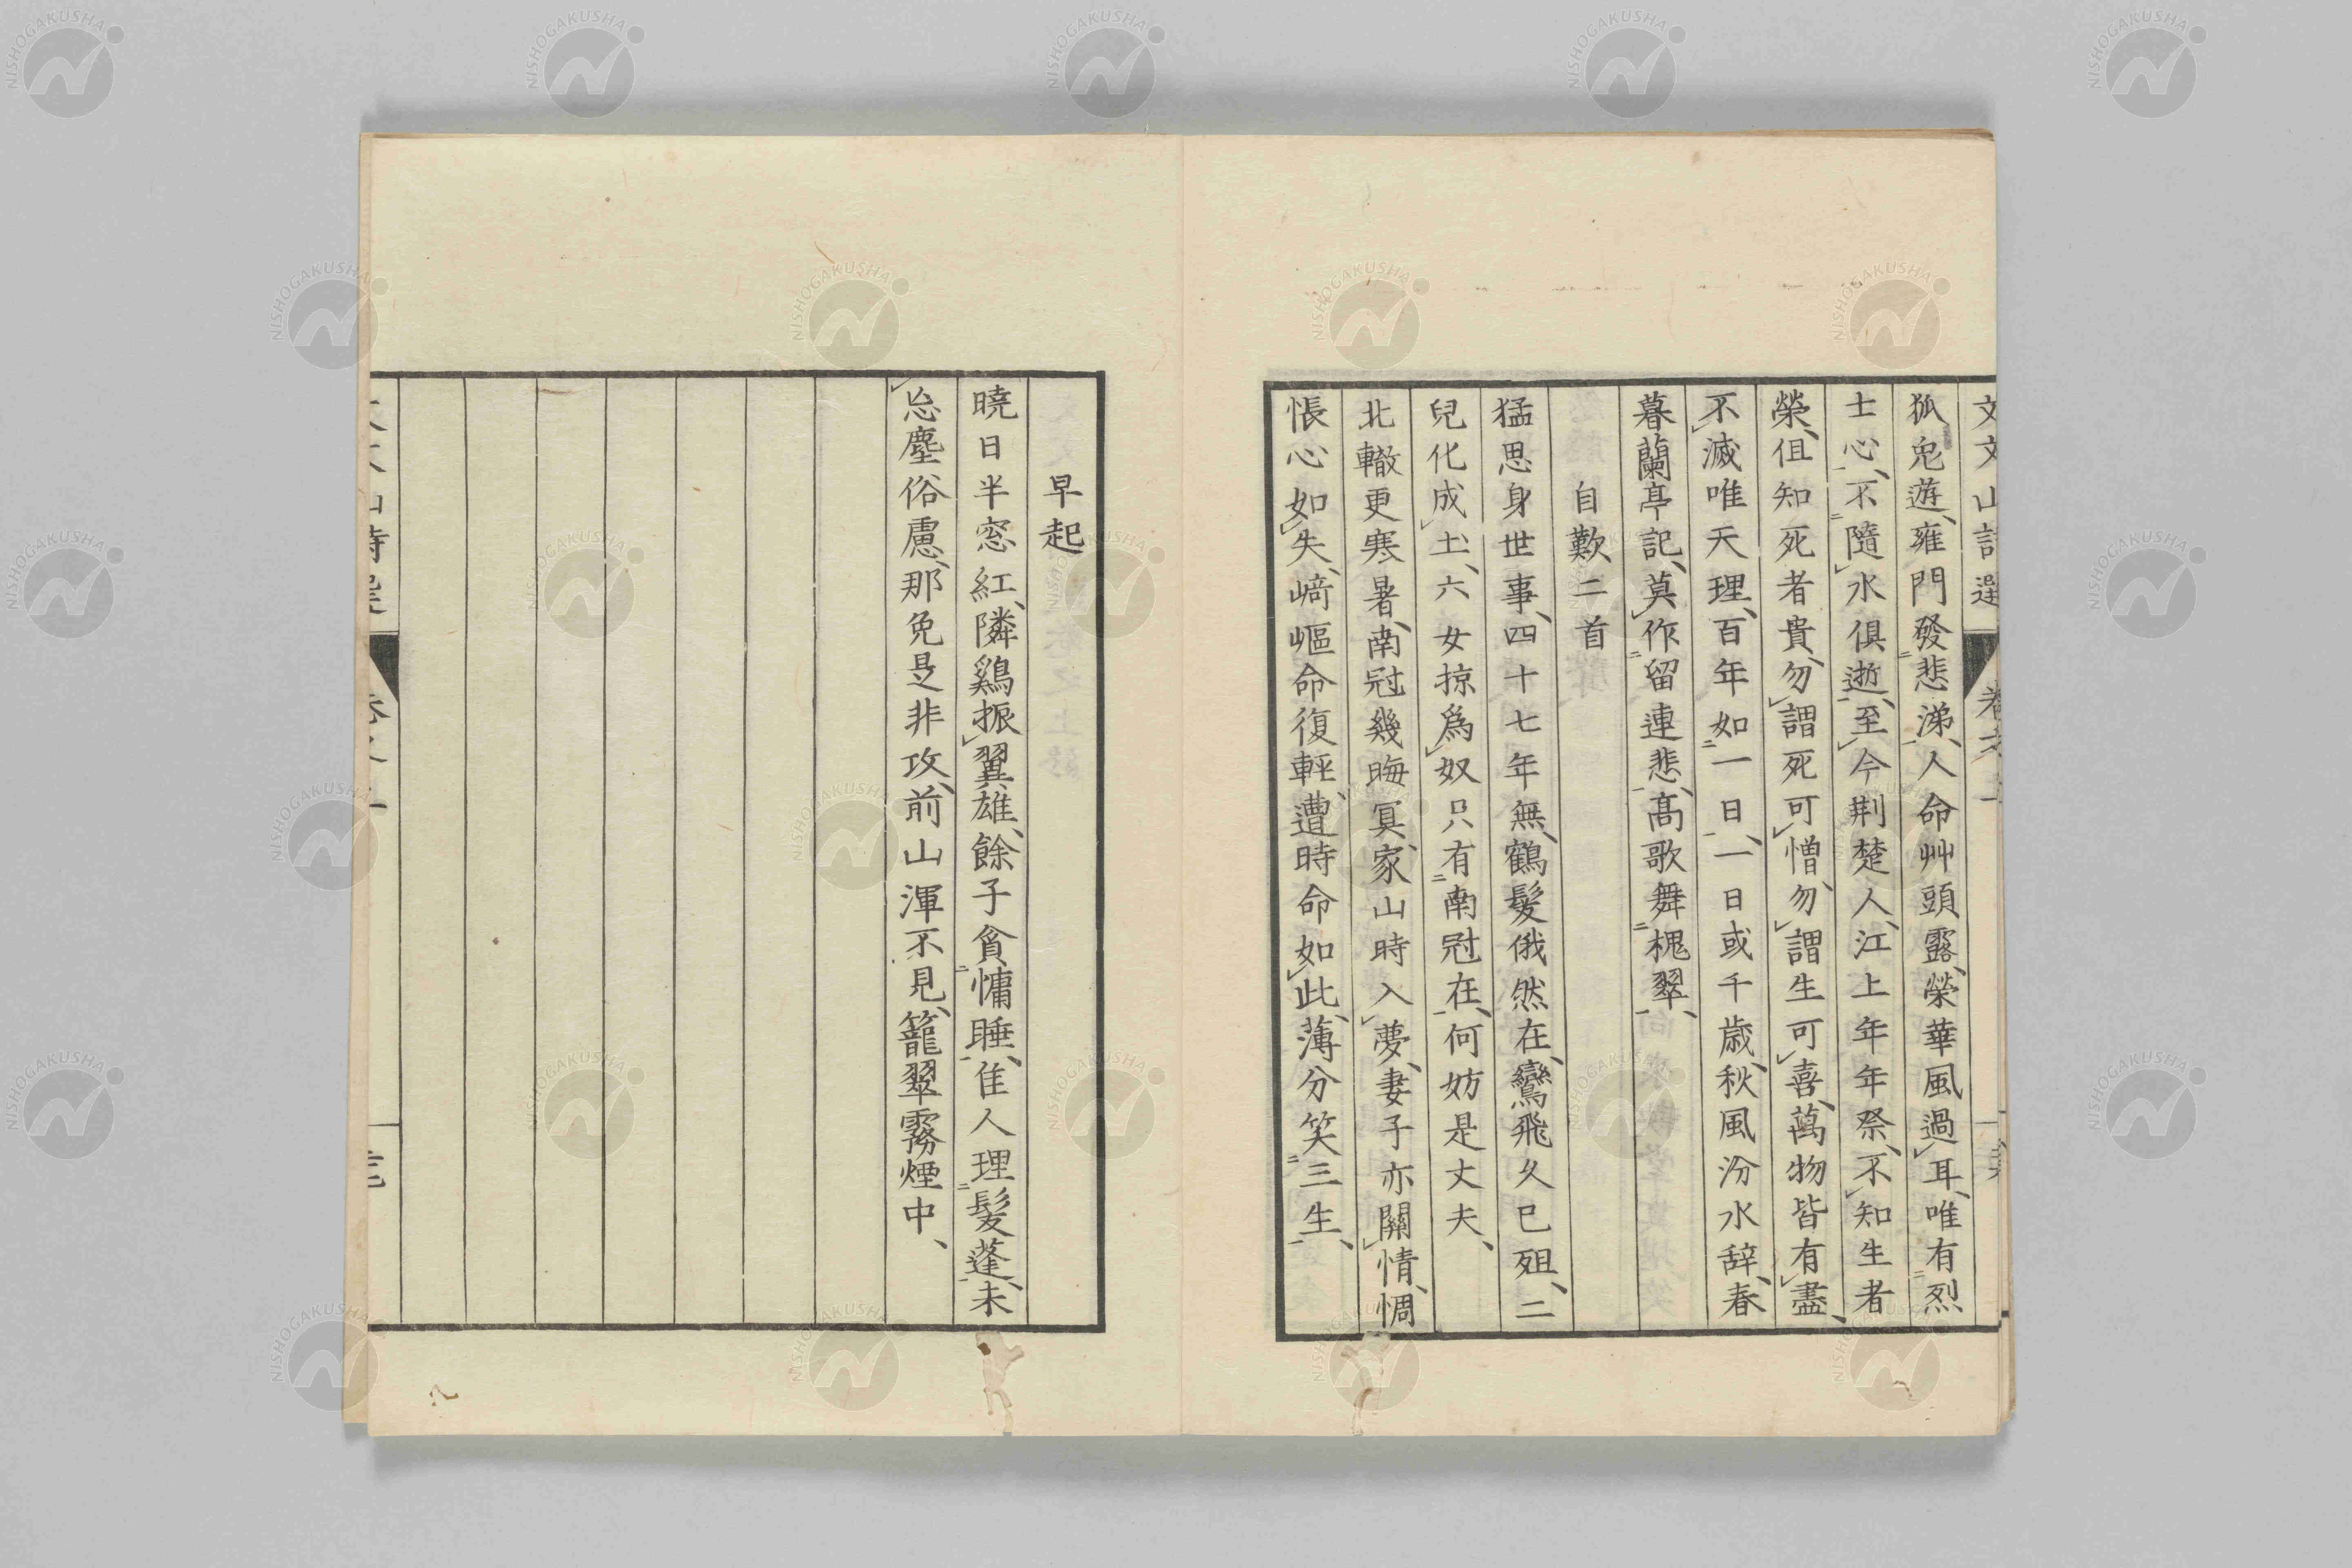 文文山詩選 卷之一
狐兔遊、雍門發悲涕、人命艸頭露、榮華風過耳、唯有烈
士心、不隨水俱逝、至今荆楚人、江上年年祭、不知生者
榮、但知死者貴、勿謂死可憎、勿謂生可喜、萬物皆有盡、
不滅唯天理、百年如一日、一日或千歲、秋風汾水辭、春
暮蘭亭記、莫作留連悲、高歌舞槐翠、
自歎二首
猛思身世事、四十七年無、鶴髮俄然在、鸞飛久已殂、二
兒化成土、六女掠爲奴、只有南冠在、何妨是丈夫、
北轍更寒暑、南冠幾晦冥、家山時入夢、妻子亦關情、惆
悵心如失、崎嶇命復輕、遭時命如此、薄分笑三生、
早起
曉日半窓紅、隣鷄振翼雄、餘子貪慵睡、佳人理髮蓬、未
忘塵俗慮、那免是非攻、前山渾不見、籠翠霧煙中、
NISHOGAKUSHA